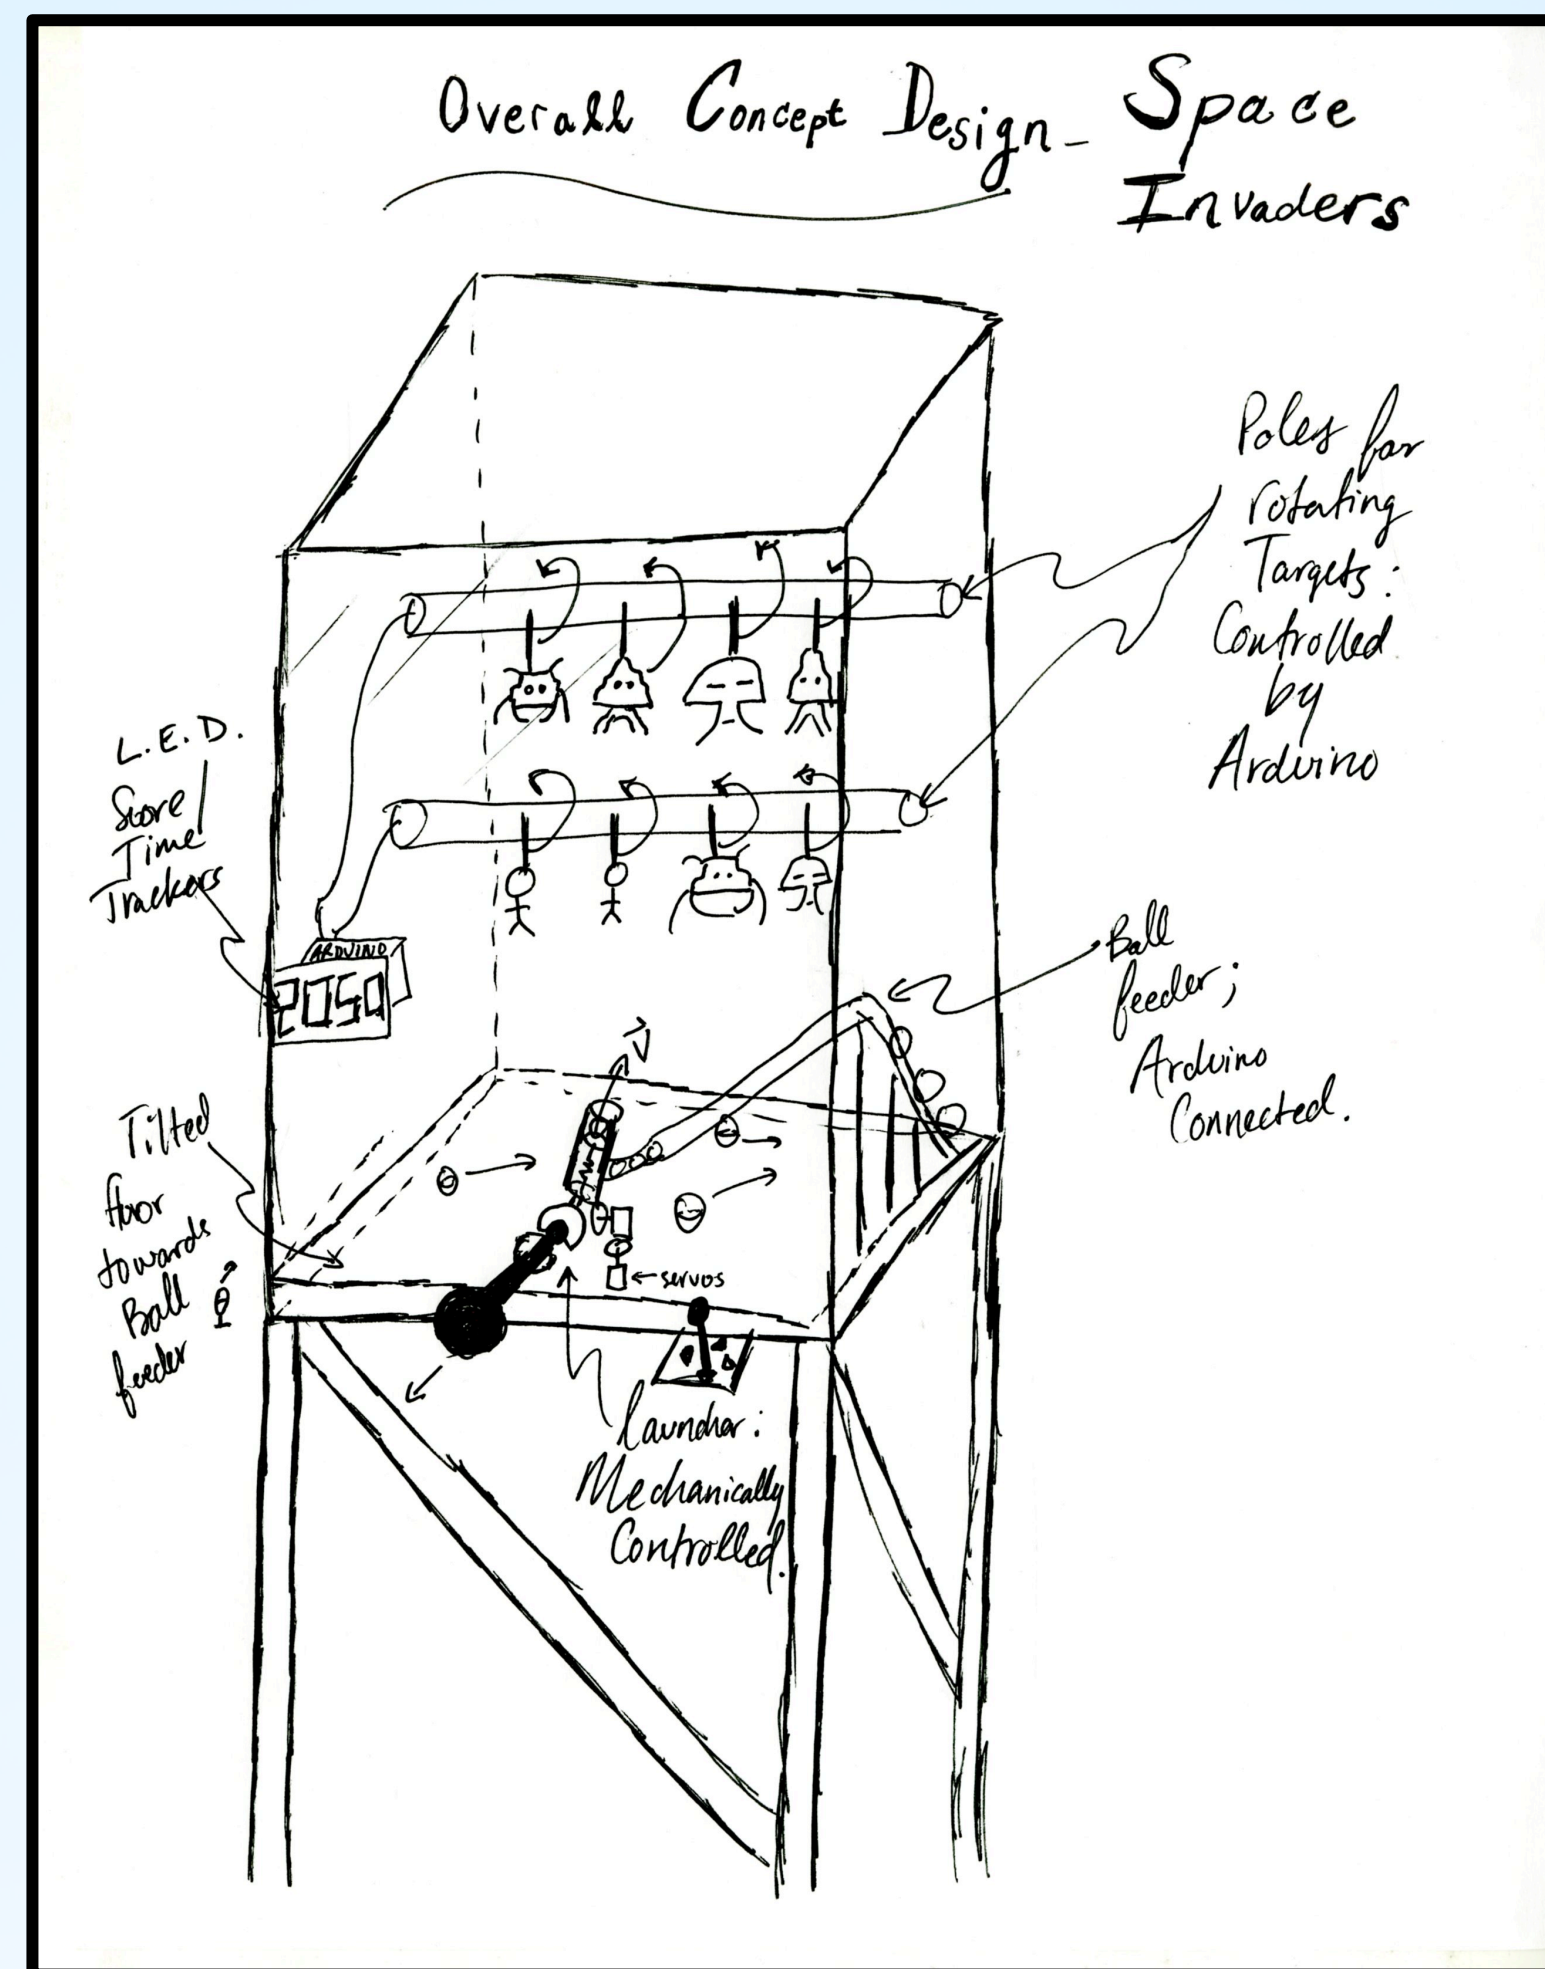 Overall Concept Design - Space
Invaders
Poles for
rotating
Targets:
Controlled
by
Arduino
L.E.D.
Score/
Time
Trackers
ARDUINO
Ball
feeder;
Arduino
Connected.
V
Tilted
floor
towards
Ball
feeder
θ
servos
launcher:
Mechanically
Controlled.